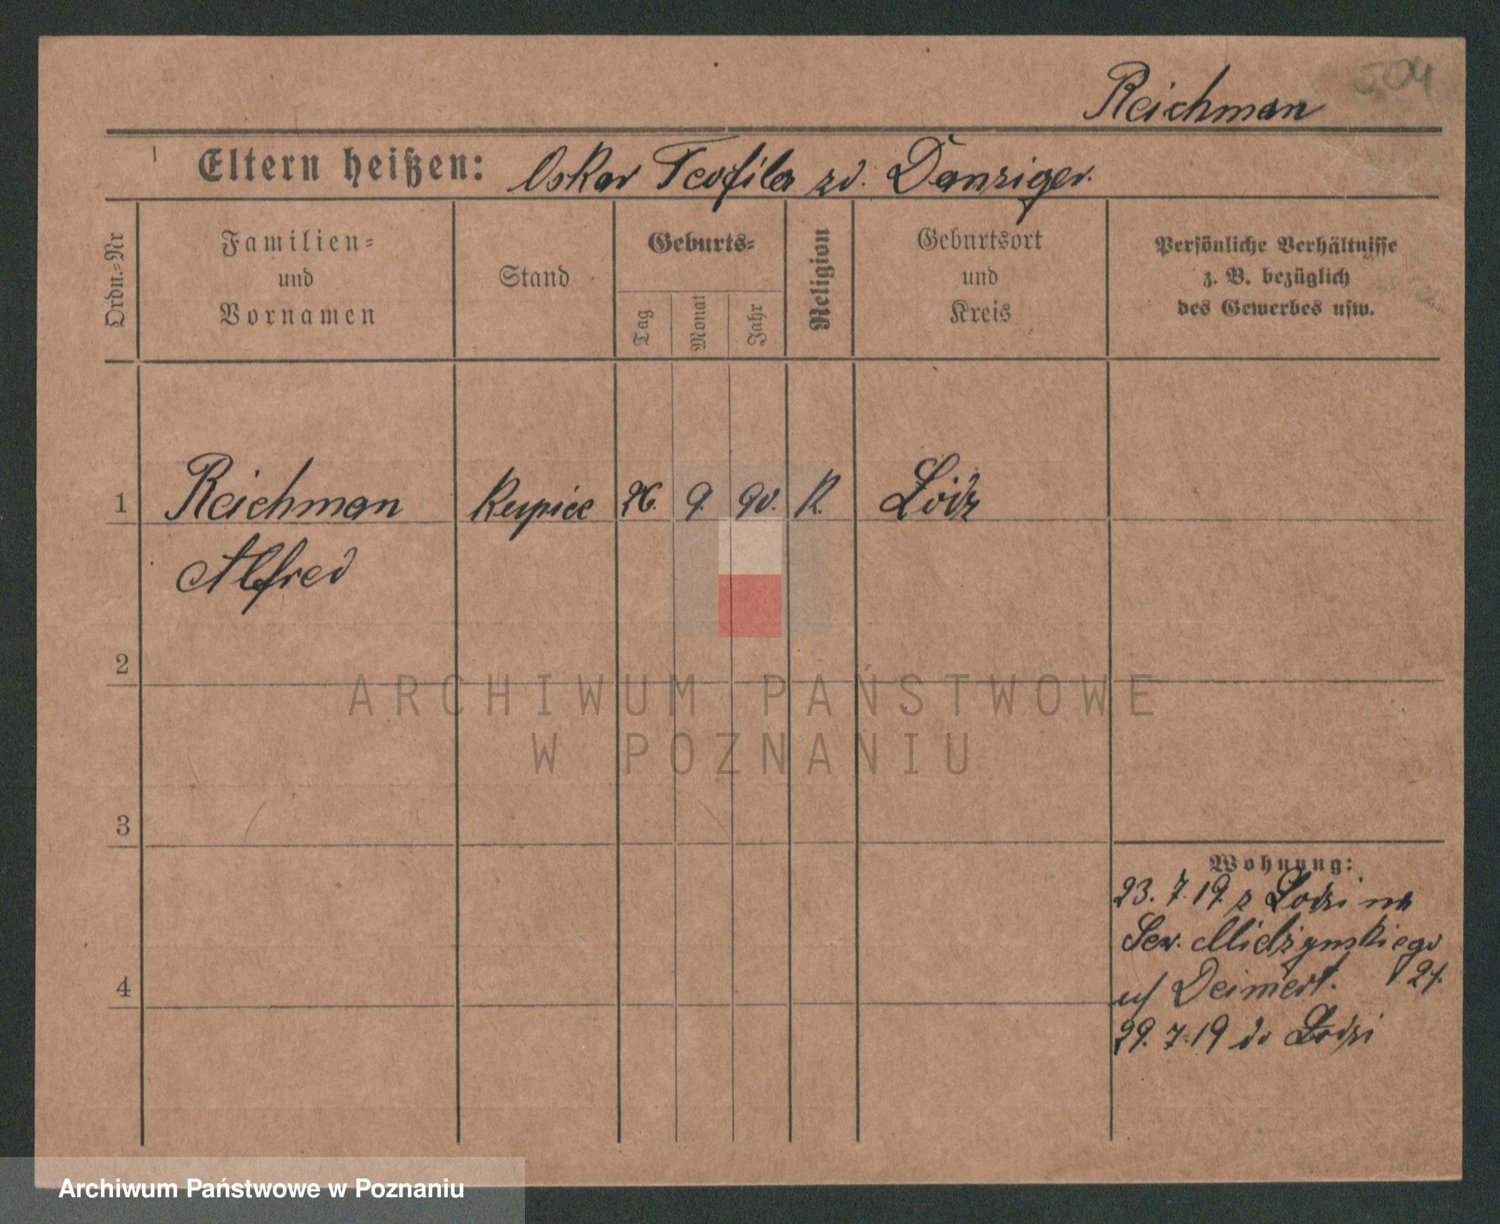 504
Reichman
Eltern heißen: Oskar Teofila zd. Danziger.
Ordn.-Nr
Familien-
und
Vornamen
Stand
Geburts-
Tag
Monat
Jahr
Religion
Geburtsort
und
Kreis
Persönliche Verhältnisse
z. B. bezüglich
des Gewerbes usw.
1 Reichman Kupiec 26. 9. 90. K. Łódz
Alfred
2
3
4
Wohnung:
23. 7. 19. z Łodzi na
Sew. Mielżynskiego
u/ 21.
29. 7. 19 do Łodzi
ARCHIWUM PAŃSTWOWE
W POZNANIU
Archiwum Państwowe w Poznaniu